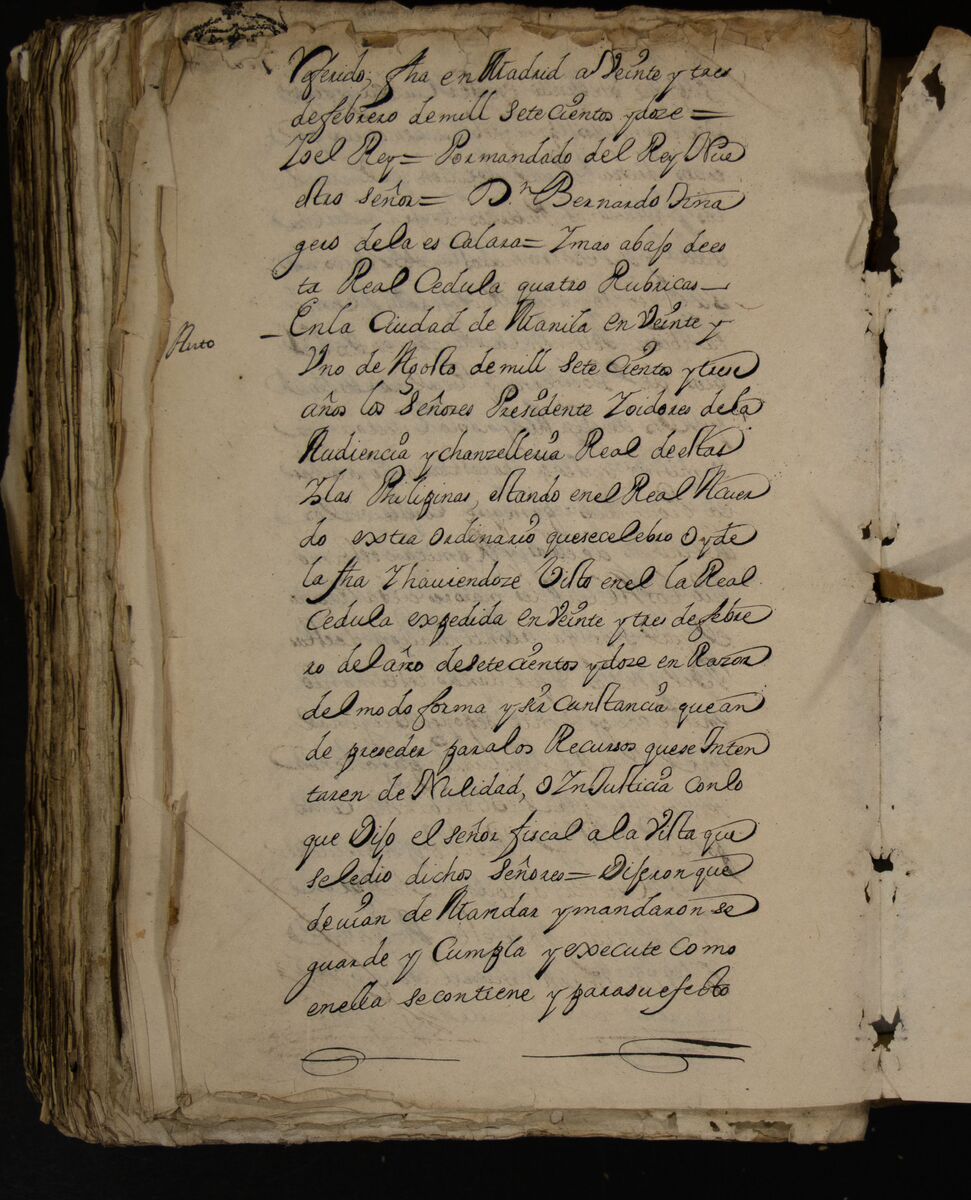 referido; fha en Madrid a Veinte y tres
de febrero de mill sete cientos y doze =
Yo el Rey = Por mandado del Rey Nue
stro señor = D.n Bernardo tina
gero de la es calara = Y mas abajo de es
ta Real Cedula quatro Rubricas —
Auto
— En la Ciudad de Manila en Veinte y
Vno de Agosto de mill sete Cientos y trese
años los Señores Presidente Yoidores de la
Audiencia y chanzelleria Real de estas
Yslas Philipinas, estando en el Real Acuer
do extra ordinario que se celebro oy de
la fha Y haviendoze Visto en el la Real
Cedula expedida en Veinte y tres de febre
ro del año de sete cientos y doze en Razon
del modo forma y sircunstancia que an
de preseder para los Recursos que se Inten
taren de Nulidad, o Injusticia con lo
que Dijo el señor fiscal a la Vista que
se le dio dichos Señores = Dijeron que
devian de Mandar y mandaron se
guarde y Cumpla y execute como
en ella se contiene y para su efecto